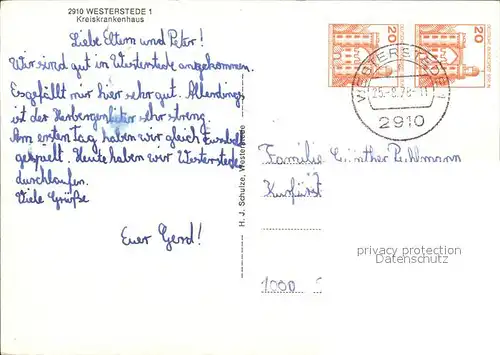 2910 WESTERSTEDE 1
Kreiskrankenhaus
Liebe Eltern und Peter!
Wir sind gut in Westerstede angekommen.
Es gefällt mir hier sehr gut. Allerdings
ist der Herbergsleiter sehr streng.
Am ersten Tag haben wir gleich Fussball
gespielt. Heute haben wir Westerstede
durchlaufen.
Viele Grüße
Euer Gerd!
H. J. Schulze, Westerstede
20
20
WESTERSTEDE 1
25.-8.78-11
2910
Familie Günther
Kurfürst
1000
privacy protection
Datenschutz